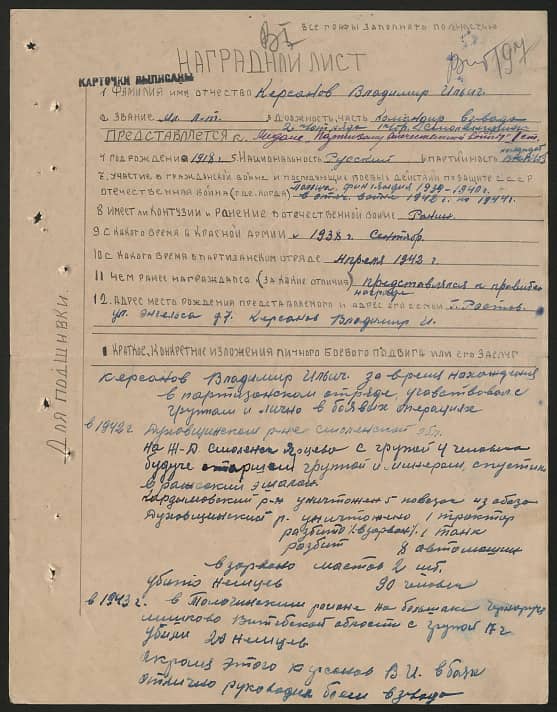 Все графы заполнять полностью
НАГРАДНОЙ ЛИСТ
КАРТОЧКИ ВЫПИСАНЫ
1 Фамилия имя, отчество Керсанов Владимир Ильич
2 Звание мл. л-т. 3 Должность, часть командир взвода
ПРЕДСТАВЛЯЕТСЯ к
4 год рождения 1918 г. 5. Национальность Русский 6 партийность
7. Участие в гражданской войне и последующие боевые действия по защите СССР
отечественная война (где, когда)
8 Имеет ли контузии и ранение в отечественной войне Ранен.
9. С какого время в Красной Армии с 1938 г. Сентябр.
10 с какого время в партизанском отряде апреля 1942 г.
11 Чем ранее награждался (за какие отличия) представлялся к правител
награде
12. Адрес место рождения представляемого и адрес его семьи г. Ростов.
ул. Энгельса 97. Керсанов Владимир И.
Краткое, конкретное изложения личного боевого подвига или его заслуг
Для подшивки.
Керсанов Владимир Ильич за время нахождения
в партизанском отряде, участвовал с
групами и лично в боявых операциях
в 1942 г. Духовщинском р-не Смоленской обл.
на Ж-Д Смоленск Ярцево с групой 4 человека
будучи старшем групой и минером, спустил
вражеский эшалон
Кардымовский р-н уничтожен 5 повозок из обоза
Духовщинский р. уничтожено 1 трактор
разбит 1 танк
разбит 8 автомашин
взарвано мастов 2 шт.
убито немцев 90 человек
в 1943 г. в Толочинском районе на большаке
Витебской области с групой 17 ч
убили 20 немцев
акрамя этого Керсанов В И. в боях
отлично руководил боем взвода